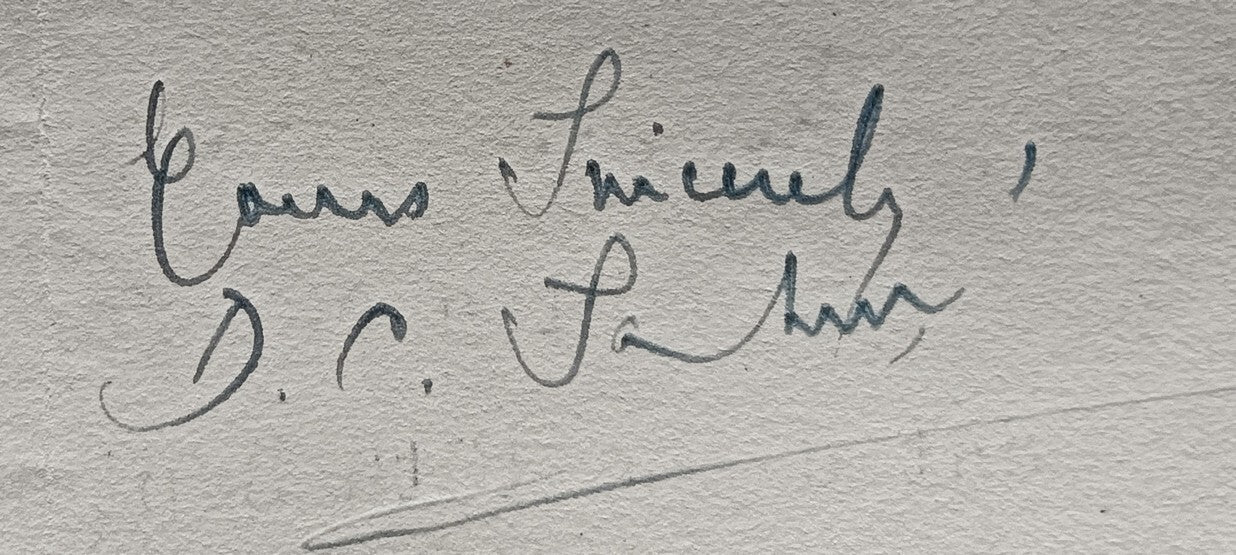 Yours Sincerely,
D. C.